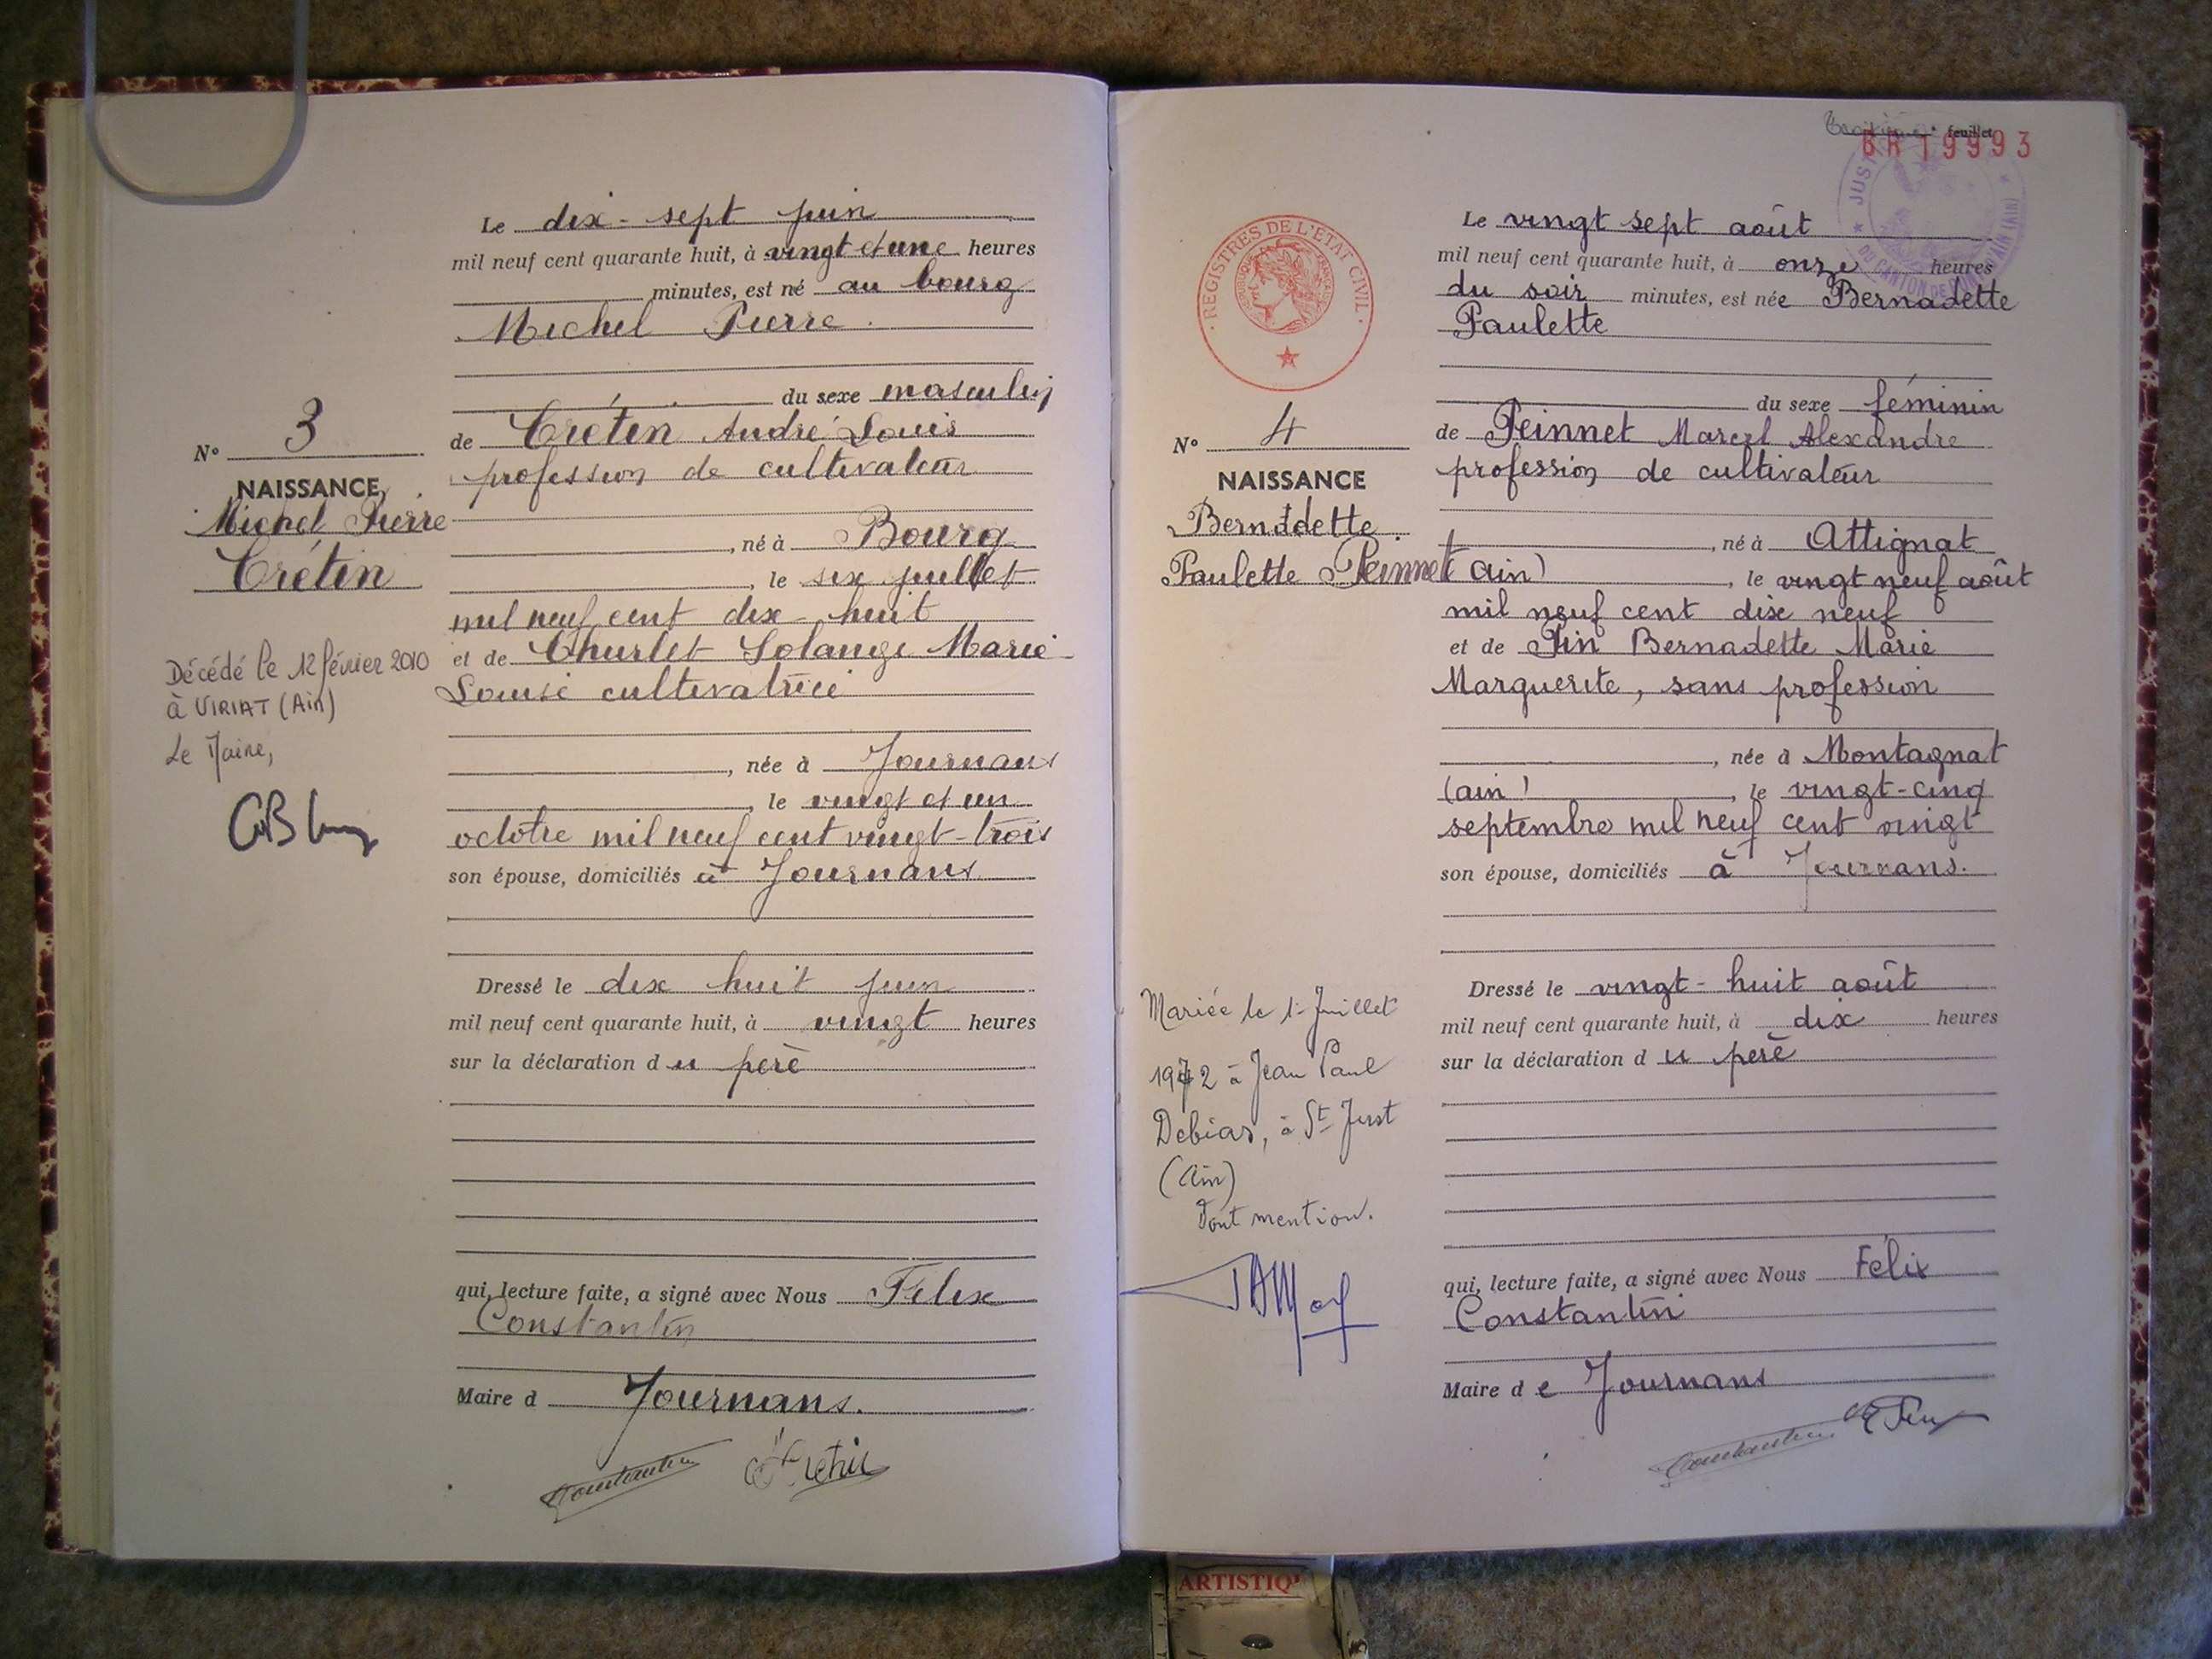 Le dix-sept juin
mil neuf cent quarante huit, à vingt et une heures
minutes, est né au bourg
Michel Pierre.
du sexe masculin
de Crétin André Louis
profession de cultivateur
, né à Bourg
, le six juillet
mil neuf cent dix huit
et de Churlet Solange Marie-
Louise cultivatrice
, née à Journans
, le vingt et un
octobre mil neuf cent vingt-trois
son épouse, domiciliés à Journans
Dressé le dix huit juin
mil neuf cent quarante huit, à vingt heures
sur la déclaration du père
qui, lecture faite, a signé avec Nous Félix
Constantin
Maire d Journans.
Constantin
Nº 3
NAISSANCE
Michel Pierre
Crétin
Décédé le 12 février 2010
à VIRIAT (Ain)
Le Maire,
feuillet
9993
Le vingt sept août
mil neuf cent quarante huit, à onze heures
du soir minutes, est née Bernadette
Paulette
du sexe féminin
de Peinnet Marcel Alexandre
profession de cultivateur
, né à Attignat
(ain) , le vingt neuf août
mil neuf cent dix neuf
et de Pin Bernadette Marie
Marguerite, sans profession
, née à Montagnat
(ain) , le vingt-cinq
septembre mil neuf cent vingt
son épouse, domiciliés à Journans.
Dressé le vingt-huit août
mil neuf cent quarante huit, à dix heures
sur la déclaration du père
qui, lecture faite, a signé avec Nous Félix
Constantin
Maire de Journans
Constantin
REGISTRES DE L'ÉTAT CIVIL
Nº 4
NAISSANCE
Bernadette
Paulette Peinnet
Mariée le 1er Juillet
1972 à Jean Paul
Debias, à St Just
(Ain)
Dont mention.
ARTISTIQ